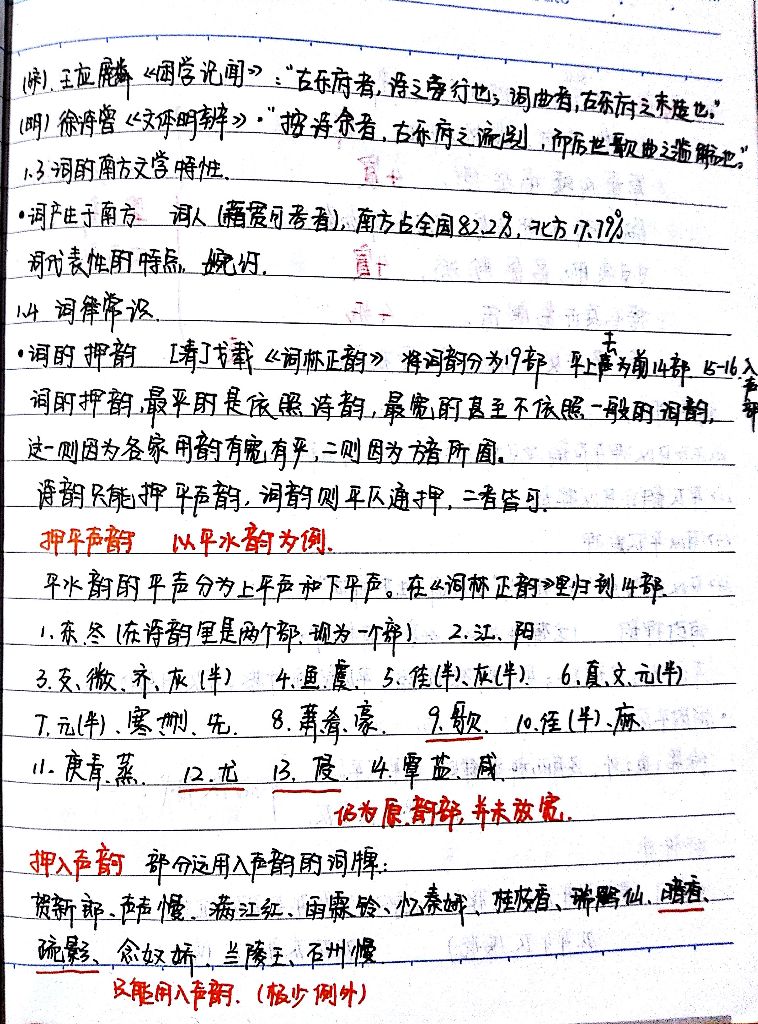 (宋).王应麟《困学记闻》:“古乐府者,诗之旁行也;词曲者,古乐府之末造也。”
(明)徐诗曾《文体明辨》·“按诗余者,古乐府之流别,而后世歌曲之滥觞也。”
1.3 词的南方文学特性.
•词产生于南方 词人(籍贯可考者),南方占全国82.2%,北方17.79%
词代表性的特点,婉约.
1.4 词律常识.
•词的押韵 [清]戈载《词林正韵》 将词韵分为19部 平上去声为前14部 15-16入声部
词的押韵,最平的是依照诗韵,最宽的甚至不依照一般的词韵,
这一则因为各家用韵有宽有平,二则因为方音所囿。
诗韵只能押平声韵,词韵则平仄通押,二者皆可.
押平声韵 以平水韵为例.
平水韵的平声分为上平声和下平声。在《词林正韵》里归到14部.
1.东、冬(在诗韵里是两个部,现为一个部) 2.江、阳
3.支、微、齐、灰(半) 4.鱼虞. 5.佳(半)、灰(半). 6.真、文、元(半)
7.元(半)、寒、删、先. 8.萧、肴、豪. 9.歌. 10.佳(半)、麻.
11.庚青、蒸. 12.尤 13.侵. 14.覃盐咸.
仍为原韵部,并未放宽.
押入声韵 部分运用入声韵的词牌:
贺新郎、声声慢、满江红、雨霖铃、忆秦娥、桂枝香、瑞鹤仙、暗香、
疏影、念奴娇、兰陵王、石州慢
只能用入声韵.(极少例外)